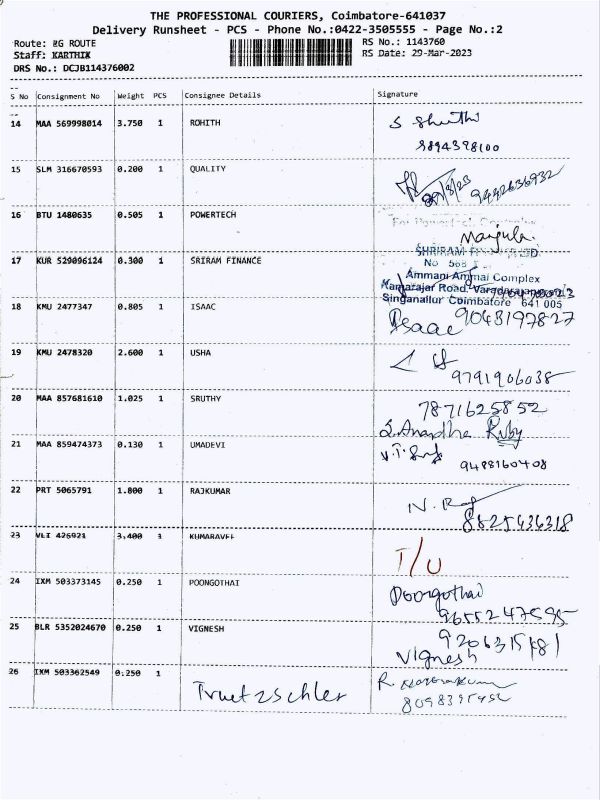 THE PROFESSIONAL COURIERS, Coimbatore-641037
Delivery Runsheet - PCS - Phone No.:0422-3505555 - Page No.:2
Route: RG ROUTE
RS No.: 1143760
Staff: KARTHIK
RS Date: 29-Mar-2023
DRS No.: DCJB114376002
S No Consignment No Weight PCS Consignee Details Signature
14 MAA 569998014 3.750 1 ROHITH
9894398100
15 SLM 316670593 0.200 1 QUALITY
29/3/23 9442636932
16 BTU 1480635 0.505 1 POWERTECH
Manjula
17 KUR 529096124 0.300 1 SRIRAM FINANCE
SHRIRAM
No 568
Ammani Ammal Complex
Kamarajar Road, Varadarajapuram
Singanallur Coimbatore 641 005
18 KMU 2477347 0.805 1 ISAAC
Isaac 9043197827
19 KMU 2478320 2.600 1 USHA
9791906038
20 MAA 857681610 1.025 1 SRUTHY
7871625852
S.Anandha Ruby
21 MAA 859474373 0.130 1 UMADEVI
9488160408
22 PRT 5065791 1.800 1 RAJKUMAR
N. Raj
8825436318
23 VLI 426921 3.400 1 KUMARAVEL
T/U
24 IXM 503373145 0.250 1 POONGOTHAI
Poongothai
9655247595
25 BLR 5352024670 0.250 1 VIGNESH
Vignesh
26 IXM 503362549 0.250 1 Truetzschler